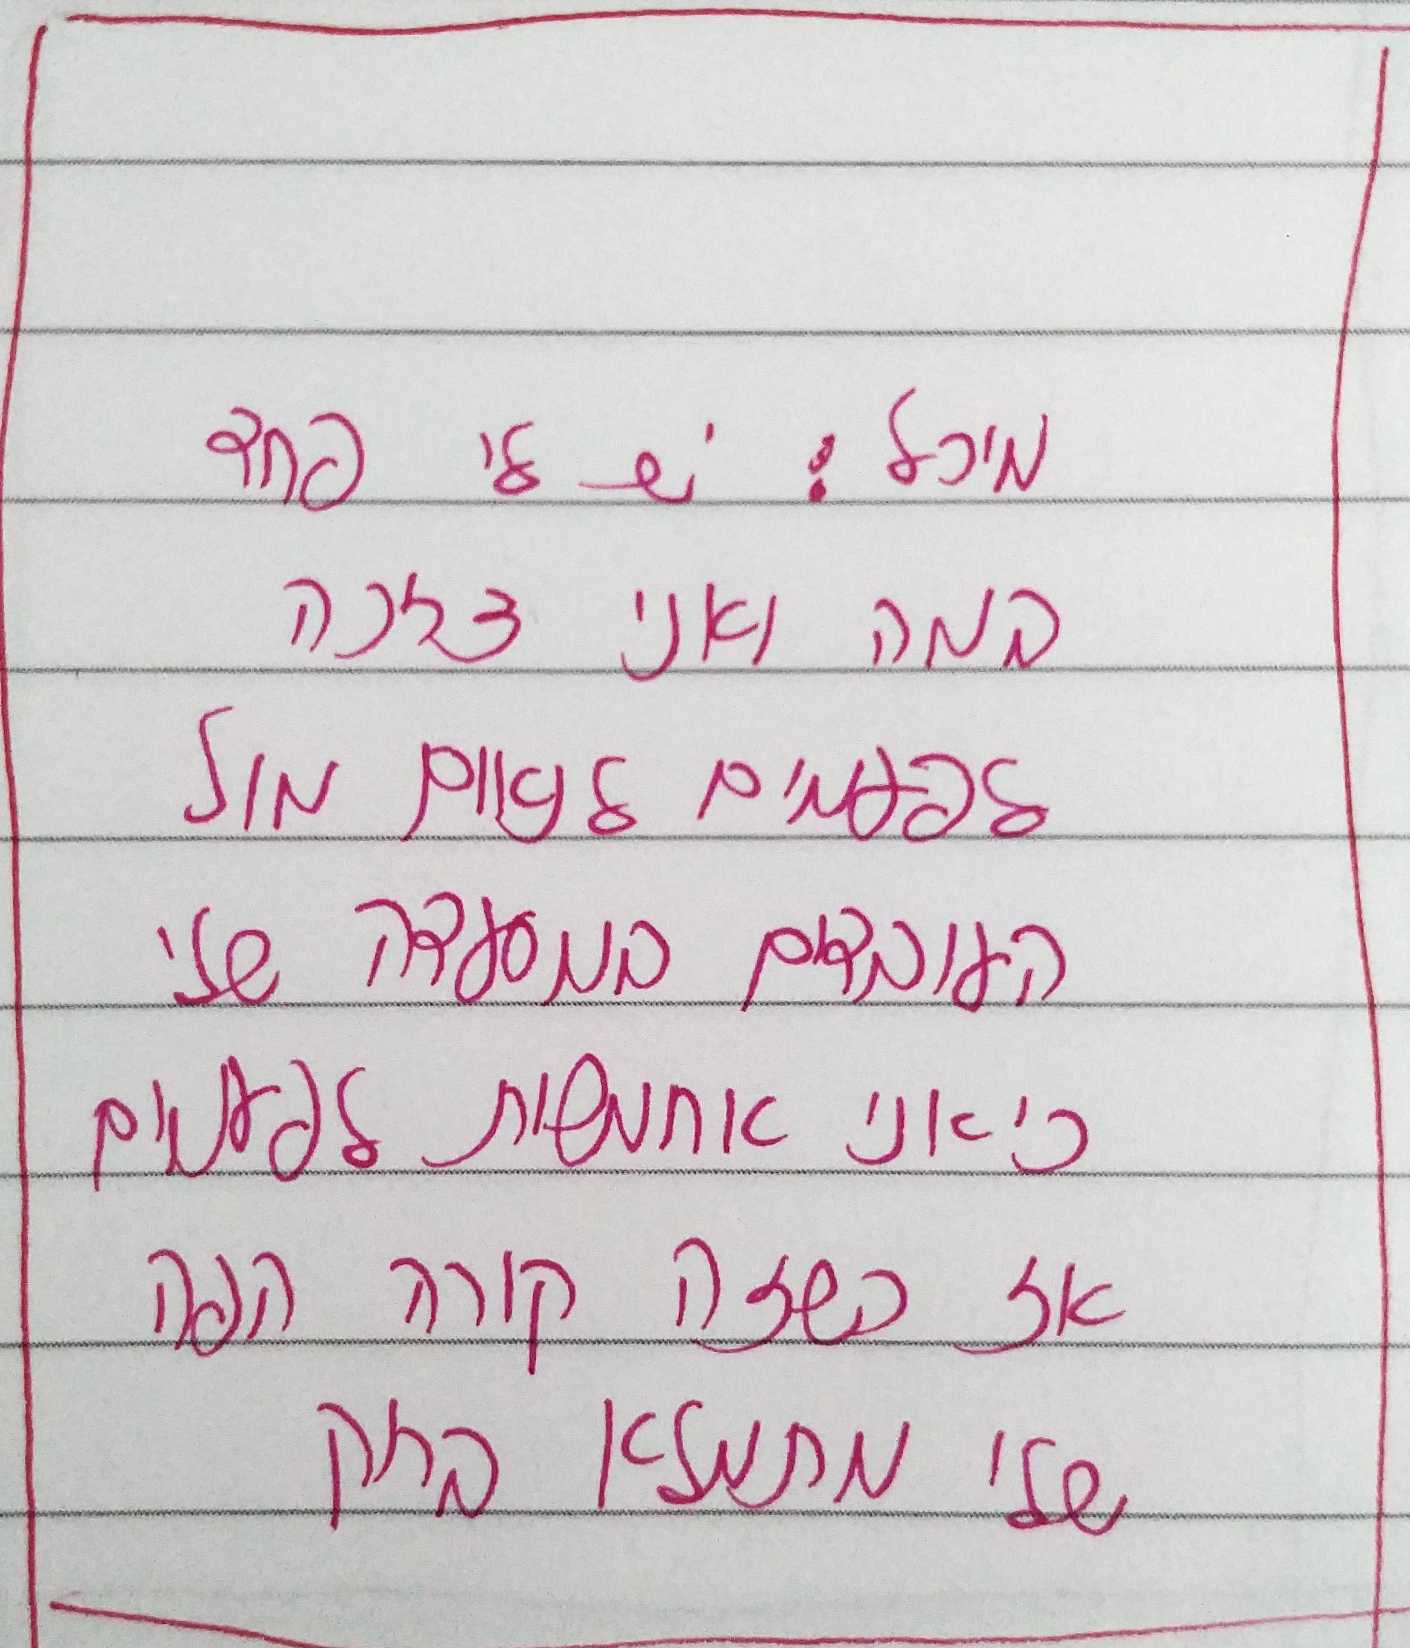 מיכל: יש לי פחד
במה ואני צריכה
לפעמים לנאום מול
העובדים במסעדה שלי
כי אני אחמשית לפעמים
אז כשזה קורה הפה
שלי מתמלא ברוק